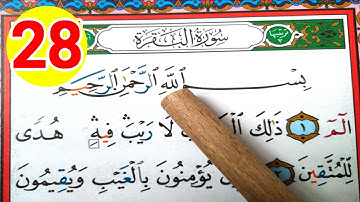 28
سُورَةُ الْبَقَرَةِ
بِسْمِ اللَّهِ الرَّحْمَٰنِ الرَّحِيمِ
الٓمٓ ١ ذَٰلِكَ لَا رَيْبَ فِيهِ هُدًى
لِّلْمُتَّقِينَ يُؤْمِنُونَ بِالْغَيْبِ وَيُقِيمُونَ